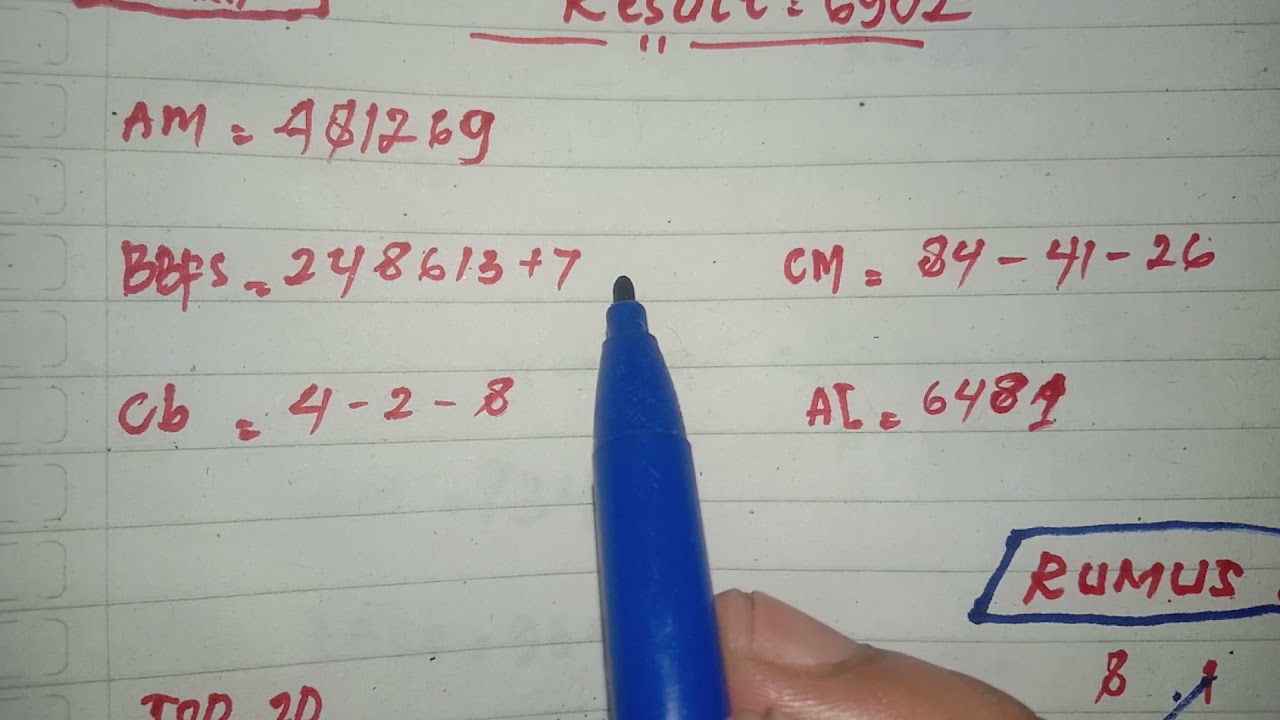 Result: 6902
AM = 481269
BBFS = 248613+7 CM = 84 - 41 - 26
Cb = 4 - 2 - 8 AI = 6481
RUMUS
8 1
TOP 2D